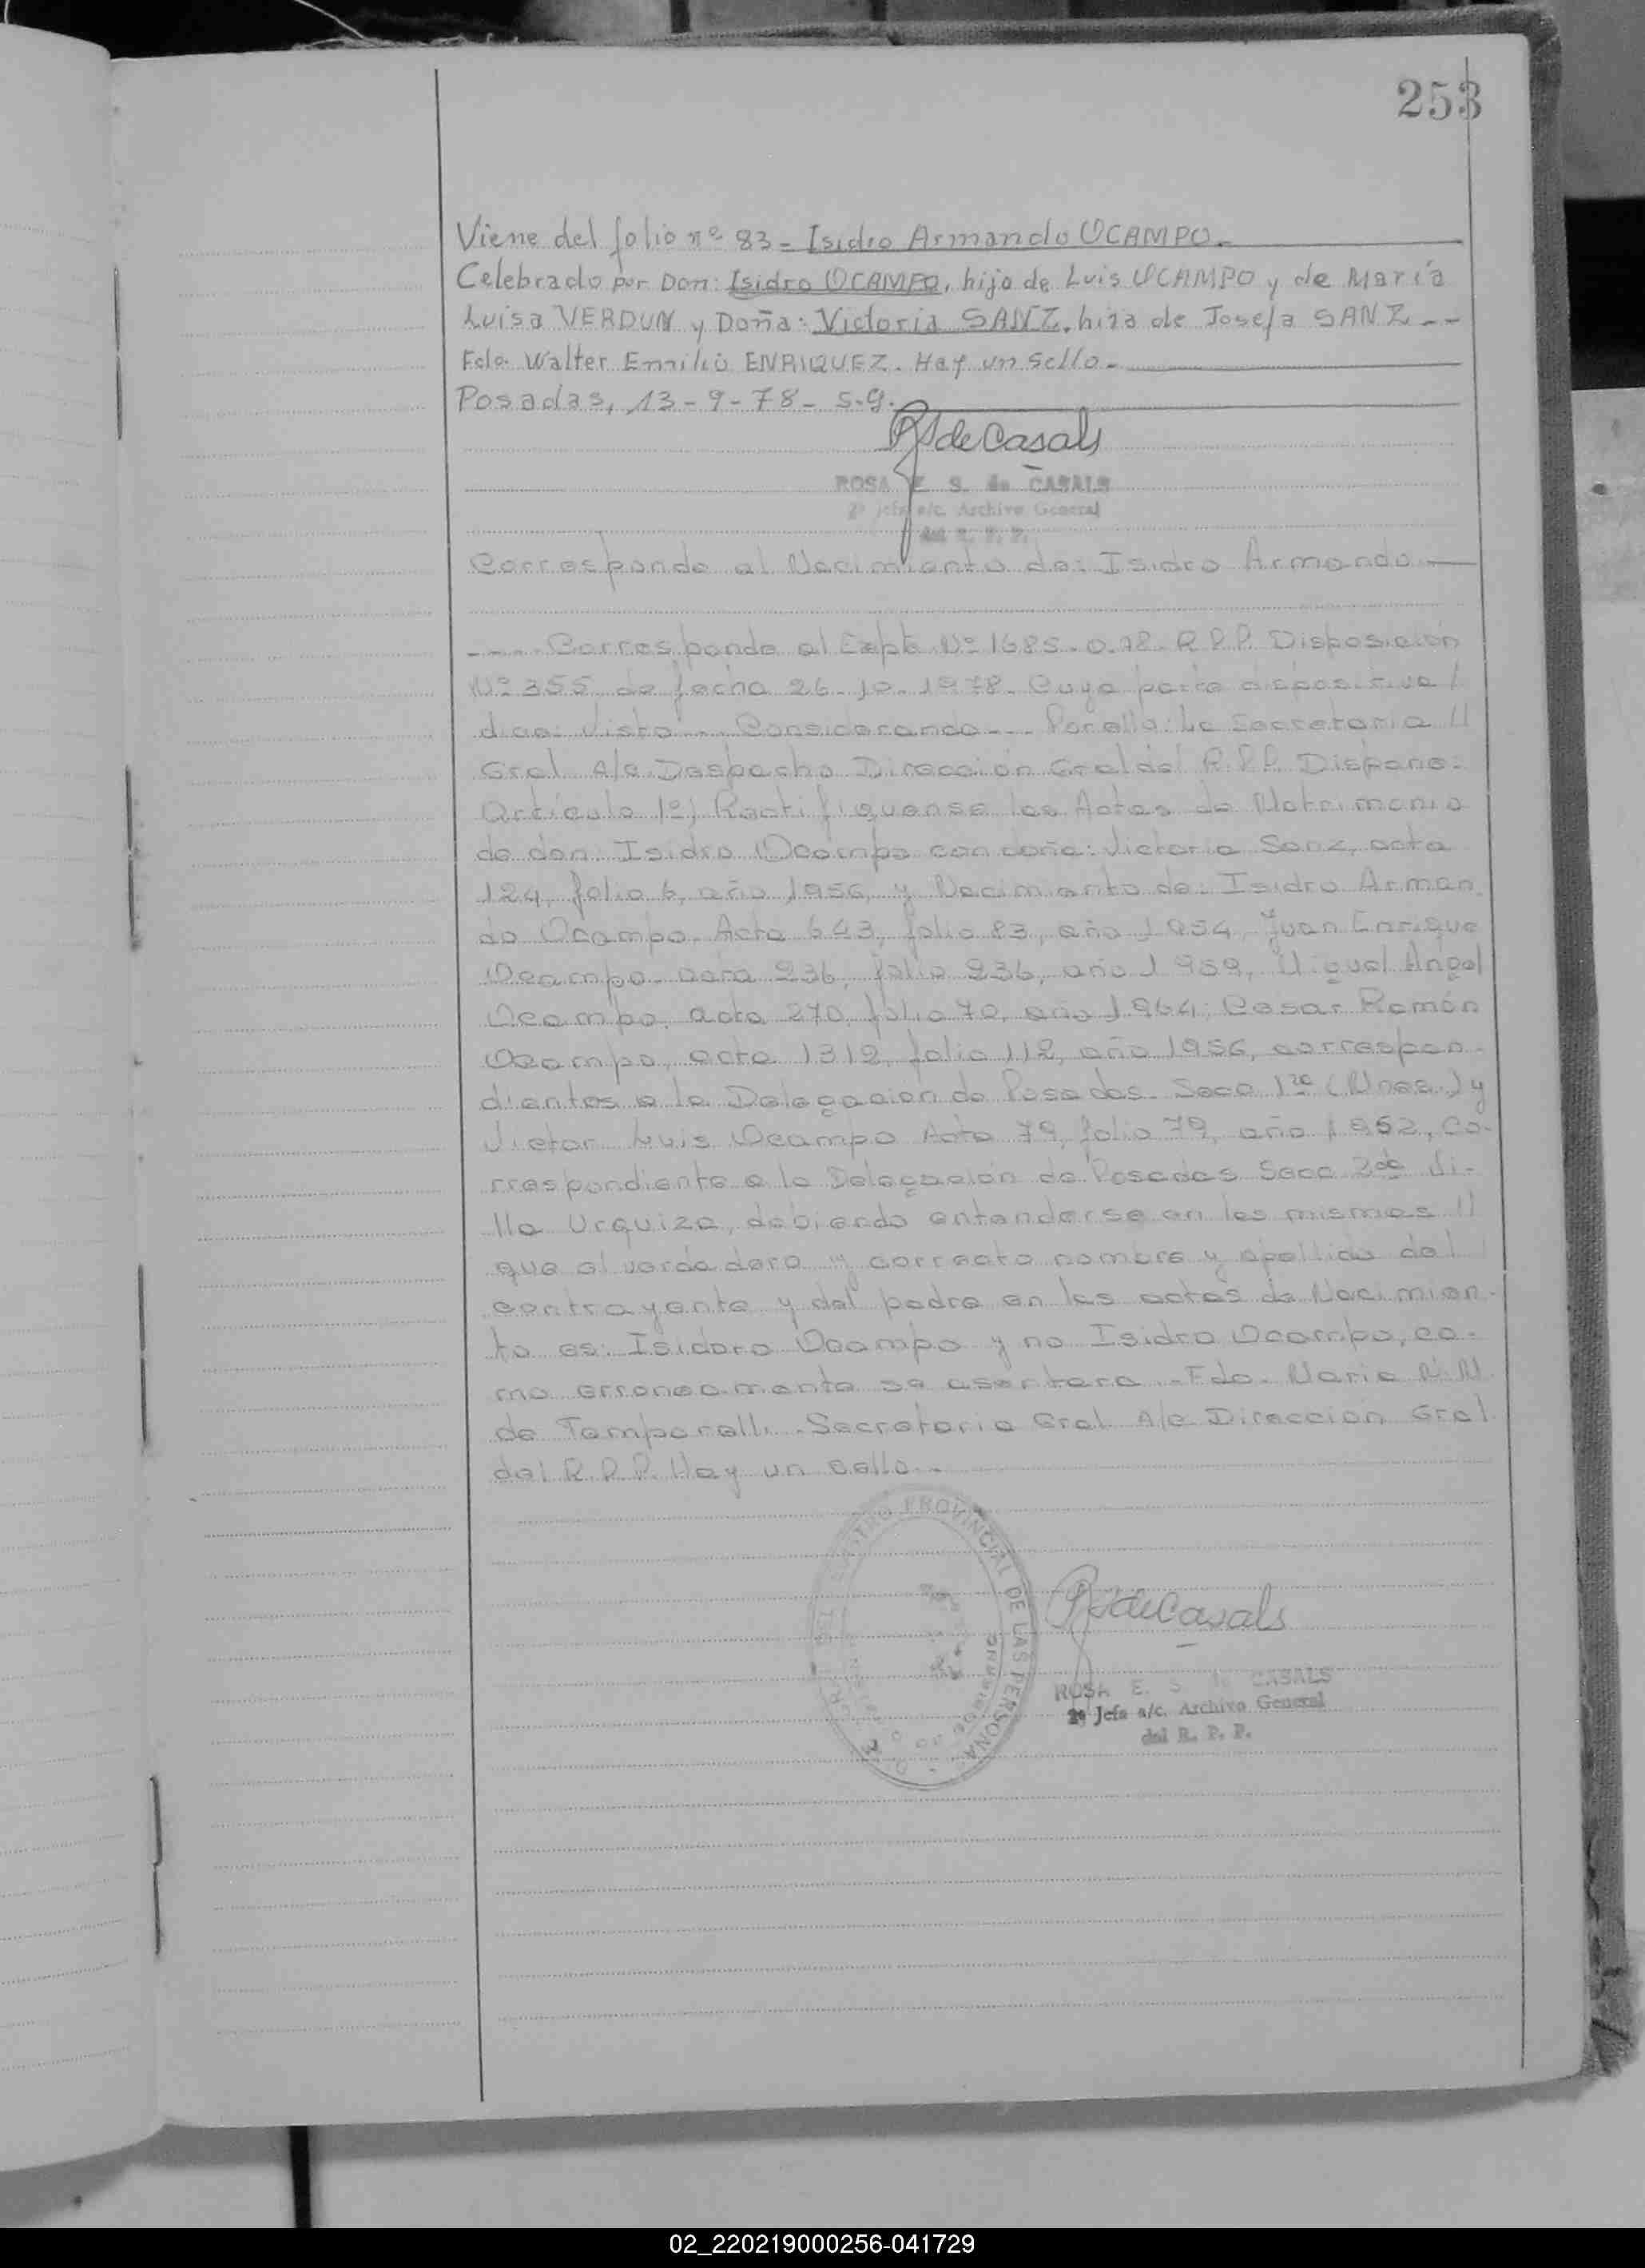 253
Viene del folio nº 83 - Isidro Armando OCAMPO.-
Celebrado por Don: Isidro OCAMPO, hijo de Luis OCAMPO y de María
Luisa VERDUN y Doña: Victoria SANZ, hija de Josefa SANZ --
Fdo. Walter Emilio ENRIQUEZ. Hay un sello.-
Posadas, 13-9-78- S.G.
RSdeCasals
ROSA E. S. de CASALS
2º Jefa a/c. Archivo General
del R. P. P.
Corresponde al Nacimiento de: Isidro Armando.—
---- Corresponde al Expte Nº 1685-0.78- R.P.P. Disposición
Nº 355, de fecha 26-10-1978- Cuya parte dispositiva /
dice: Visto... Considerando--- Por ello: La Secretaria //
Gral A/c. Despacho Dirección Gral del R.P.P. Dispone:
Artículo 1º) Rectifiquense las Actas de Matrimonio
de don: Isidro Ocampo con doña: Victoria Sanz, acta
124, folio 6, año 1956, y Nacimiento de: Isidro Arman-
do Ocampo. Acta 643, folio 83, año 1954, Juan Enrique
Ocampo- acta 236, folio 236, año 1959, Miguel Angel
Ocampo, acta 270, folio 70, año 1964; Cesar Ramón
Ocampo, acta 1312, folio 112, año 1956, correspon-
dientes a la Delegación de Posadas- Secc 1ra (Mnes.) y
Victor Luis Ocampo Acta 79, folio 79, año 1952, co-
rrespondiente a la Delegación de Posadas Secc 2da Vi-
lla Urquiza, debiendo entenderse en las mismas //
que el verdadero y correcto nombre y apellido del
contrayente y del padre en las actas de Nacimien-
to es: Isidoro Ocampo y no Isidro Ocampo, co-
mo erroneamente se asentara.- Fdo. Maria N. M.
de Temporelli.- Secretaria Gral A/c Dirección Gral
del R.P.P. Hay un sello.-
PROVINCIAL DE LAS PERSONAS
RSdeCasals
ROSA E. S. de CASALS
2º Jefa a/c. Archivo General
del R. P. P.
02_220219000256-041729